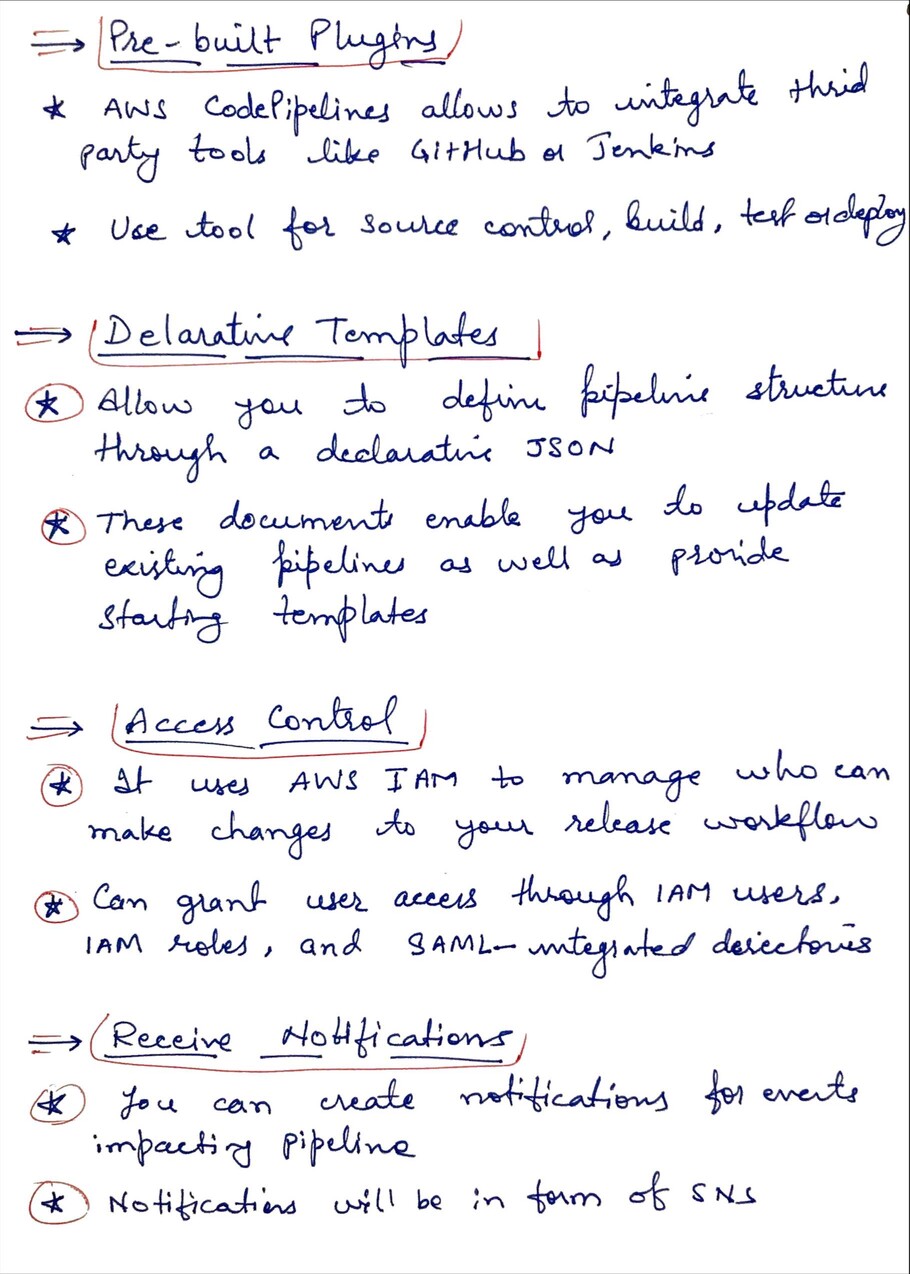 ⇒ Pre-built Plugins
* AWS CodePipelines allows to integrate thrid
party tools like GitHub or Jenkins
* Use tool for source control, build, test or deploy
⇒ Delarative Templates
* Allow you to define pipeline structure
through a declarative JSON
* These documents enable you to update
existing pipelines as well as provide
starting templates
⇒ Access Control
* It uses AWS IAM to manage who can
make changes to your release workflow
* Can grant user access through IAM users,
IAM roles, and SAML-integrated desectories
⇒ Receive Notifications
* You can create notifications for events
impacting pipeline
* Notifications will be in form of SNS